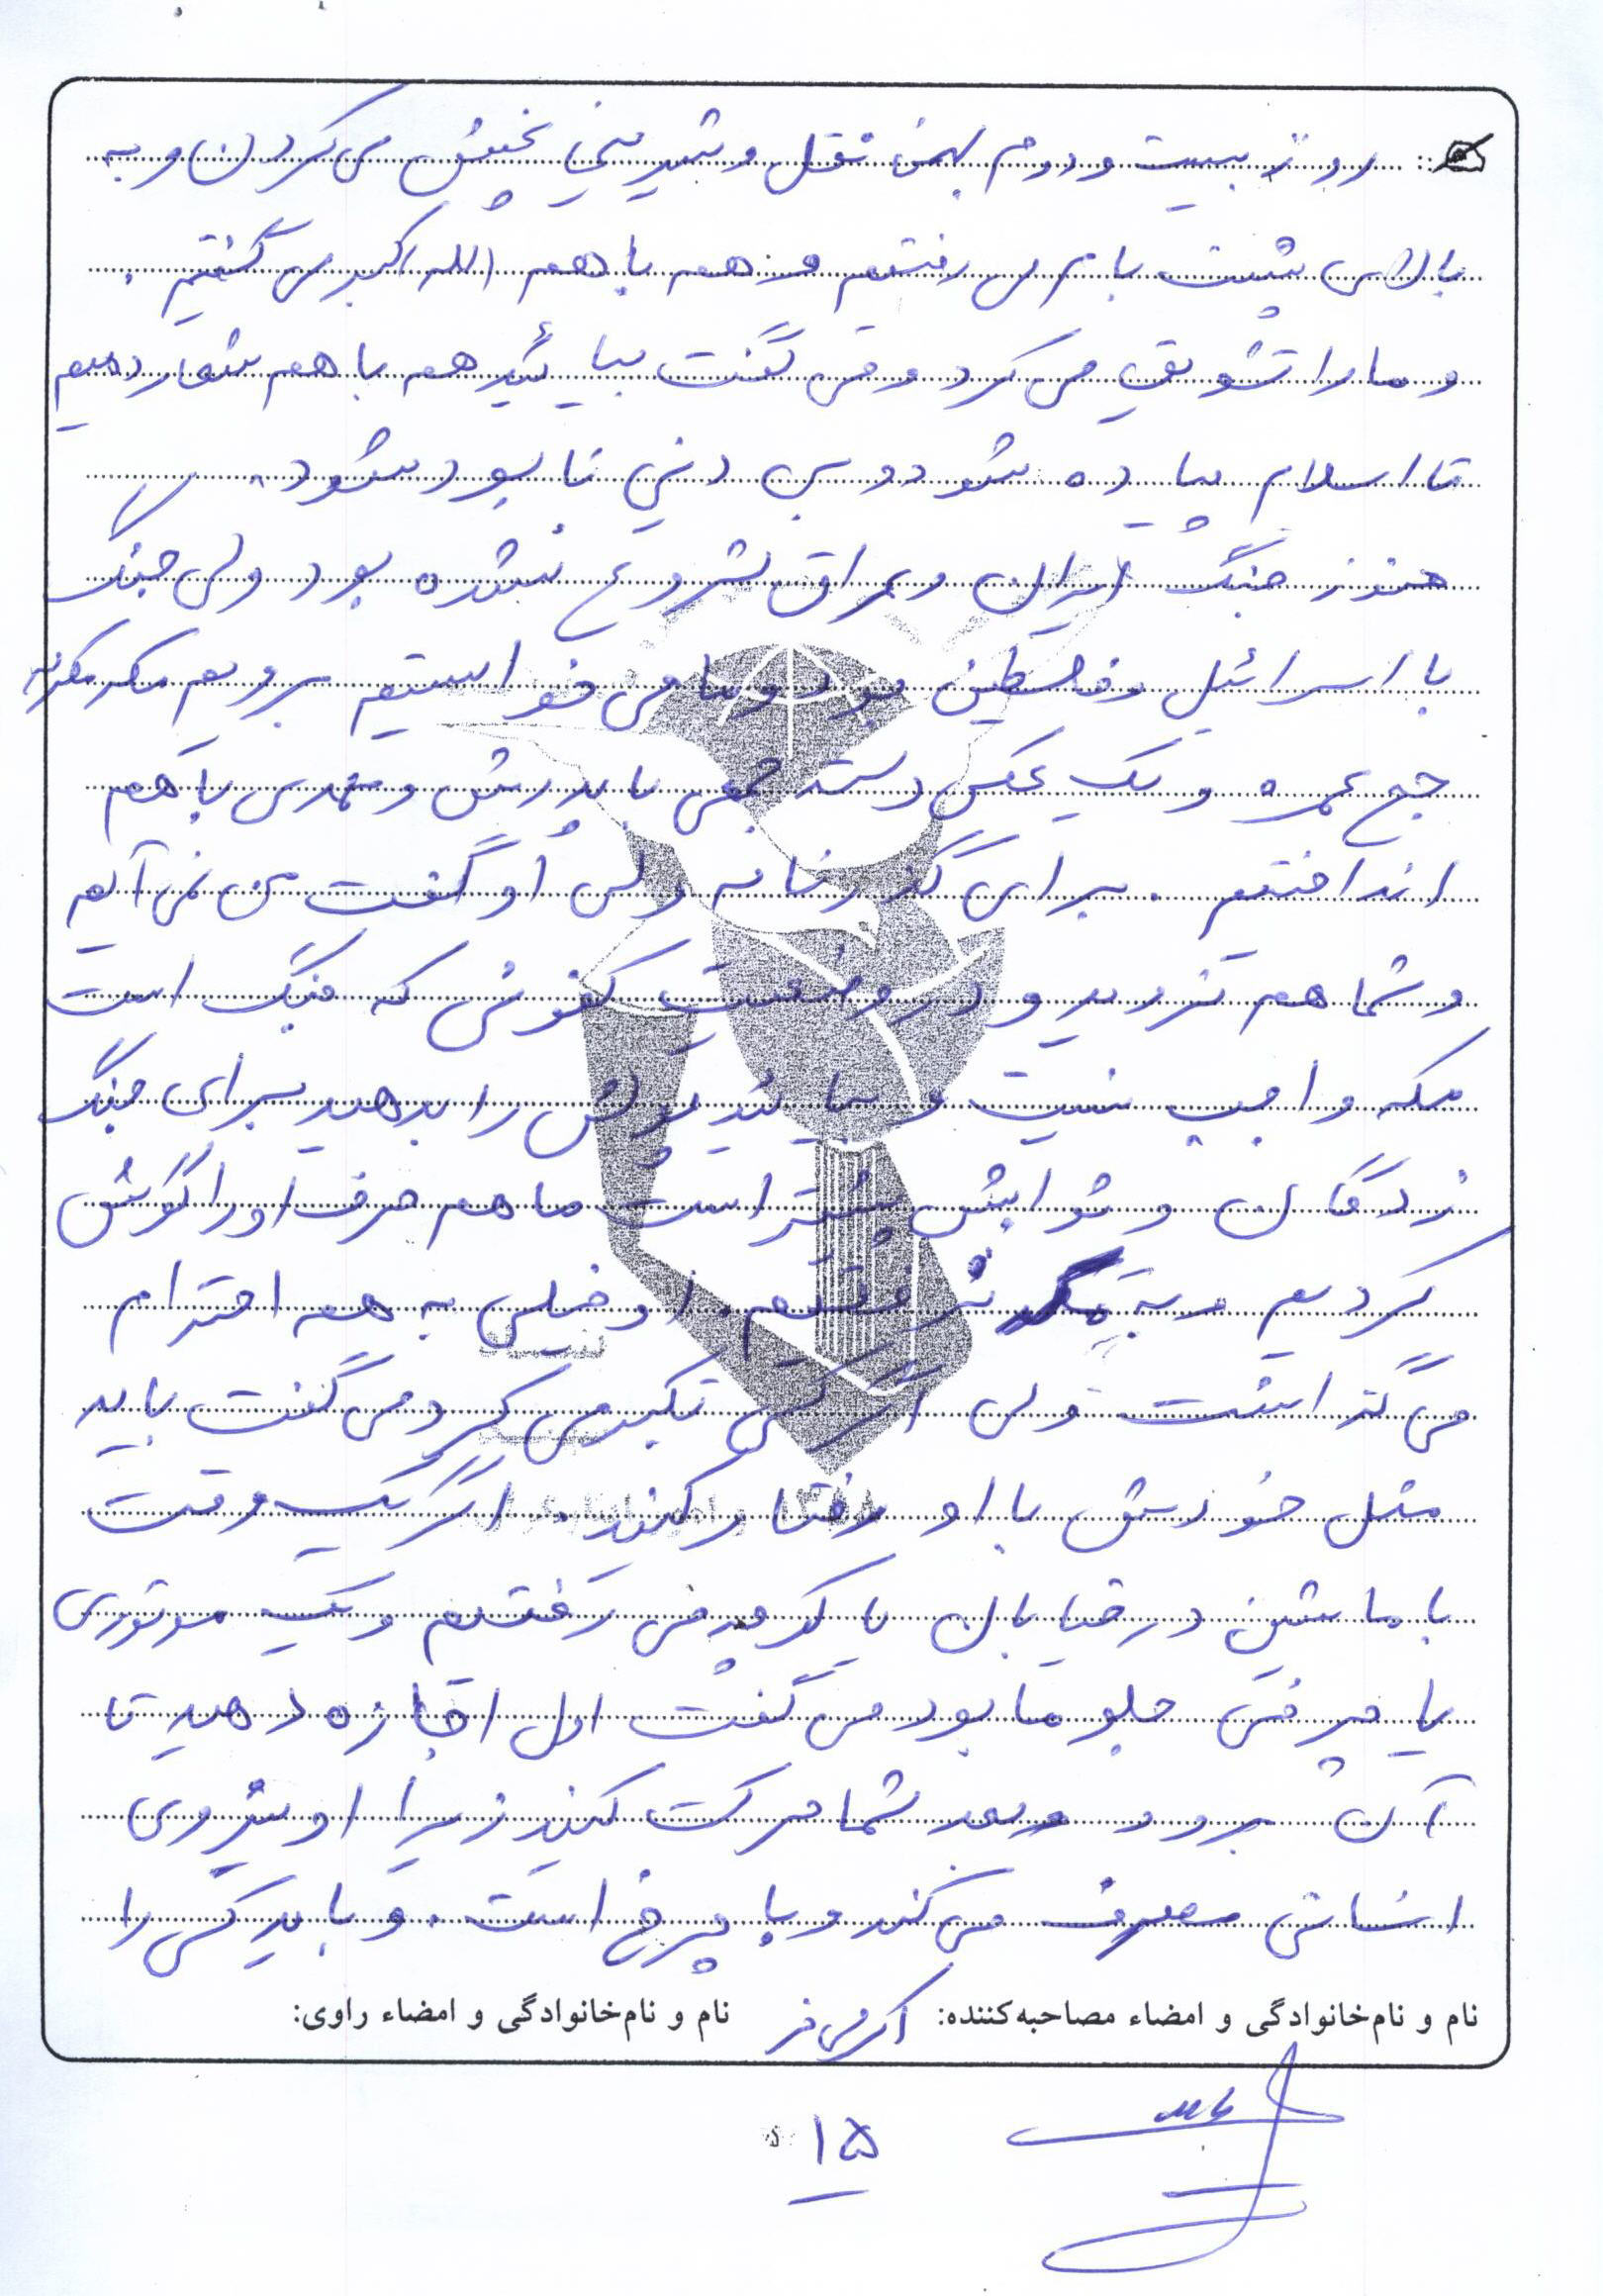 روز بیست و دوم بهمن نقل و شیرینی پخش می کردن و به
بالای پشت بام می رفتیم و همه با هم الله اکبر می گفتیم .
و ما را تشویق می کرد و می گفت بیائید همه با هم شعار دهیم
تا اسلام پیاده شود و بی دینی نابود شود .
هنوز جنگ ایران و عراق شروع نشده بود ولی جنگ
با اسرائیل و فلسطین بود و ما می خواستیم برویم مکه
حج عمره و یک عکس دسته جمعی با پدرش و مهدی با هم
انداختیم . برای گذرنامه ولی او گفت من نمی آیم
و شما هم نروید و در وضعیت کنونی که جنگ است
مکه واجب نیست و بیائید پولش را بدهید برای جنگ
زدگان و ثوابش بیشتر است ما هم حرف او را گوش
کردیم و به مکه نرفتیم . او خیلی به همه احترام
می گذاشت ولی اگر کسی تکبر می کرد می گفت باید
مثل خودش با او رفتار کنید . اگر یک وقت
با ماشین در خیابان یا کوچه می رفتیم و یک موتوری
یا چرخی جلو ما بود می گفت اول اجازه دهید تا
آن برود و بعد شما حرکت کنید زیرا او نیروی
انسانی مصرف می کند و با چرخ است . و باید کسی را
نام و نام‌خانوادگی و امضاء مصاحبه‌کننده: اکرمی فر نام و نام‌خانوادگی و امضاء راوی:
۱۵